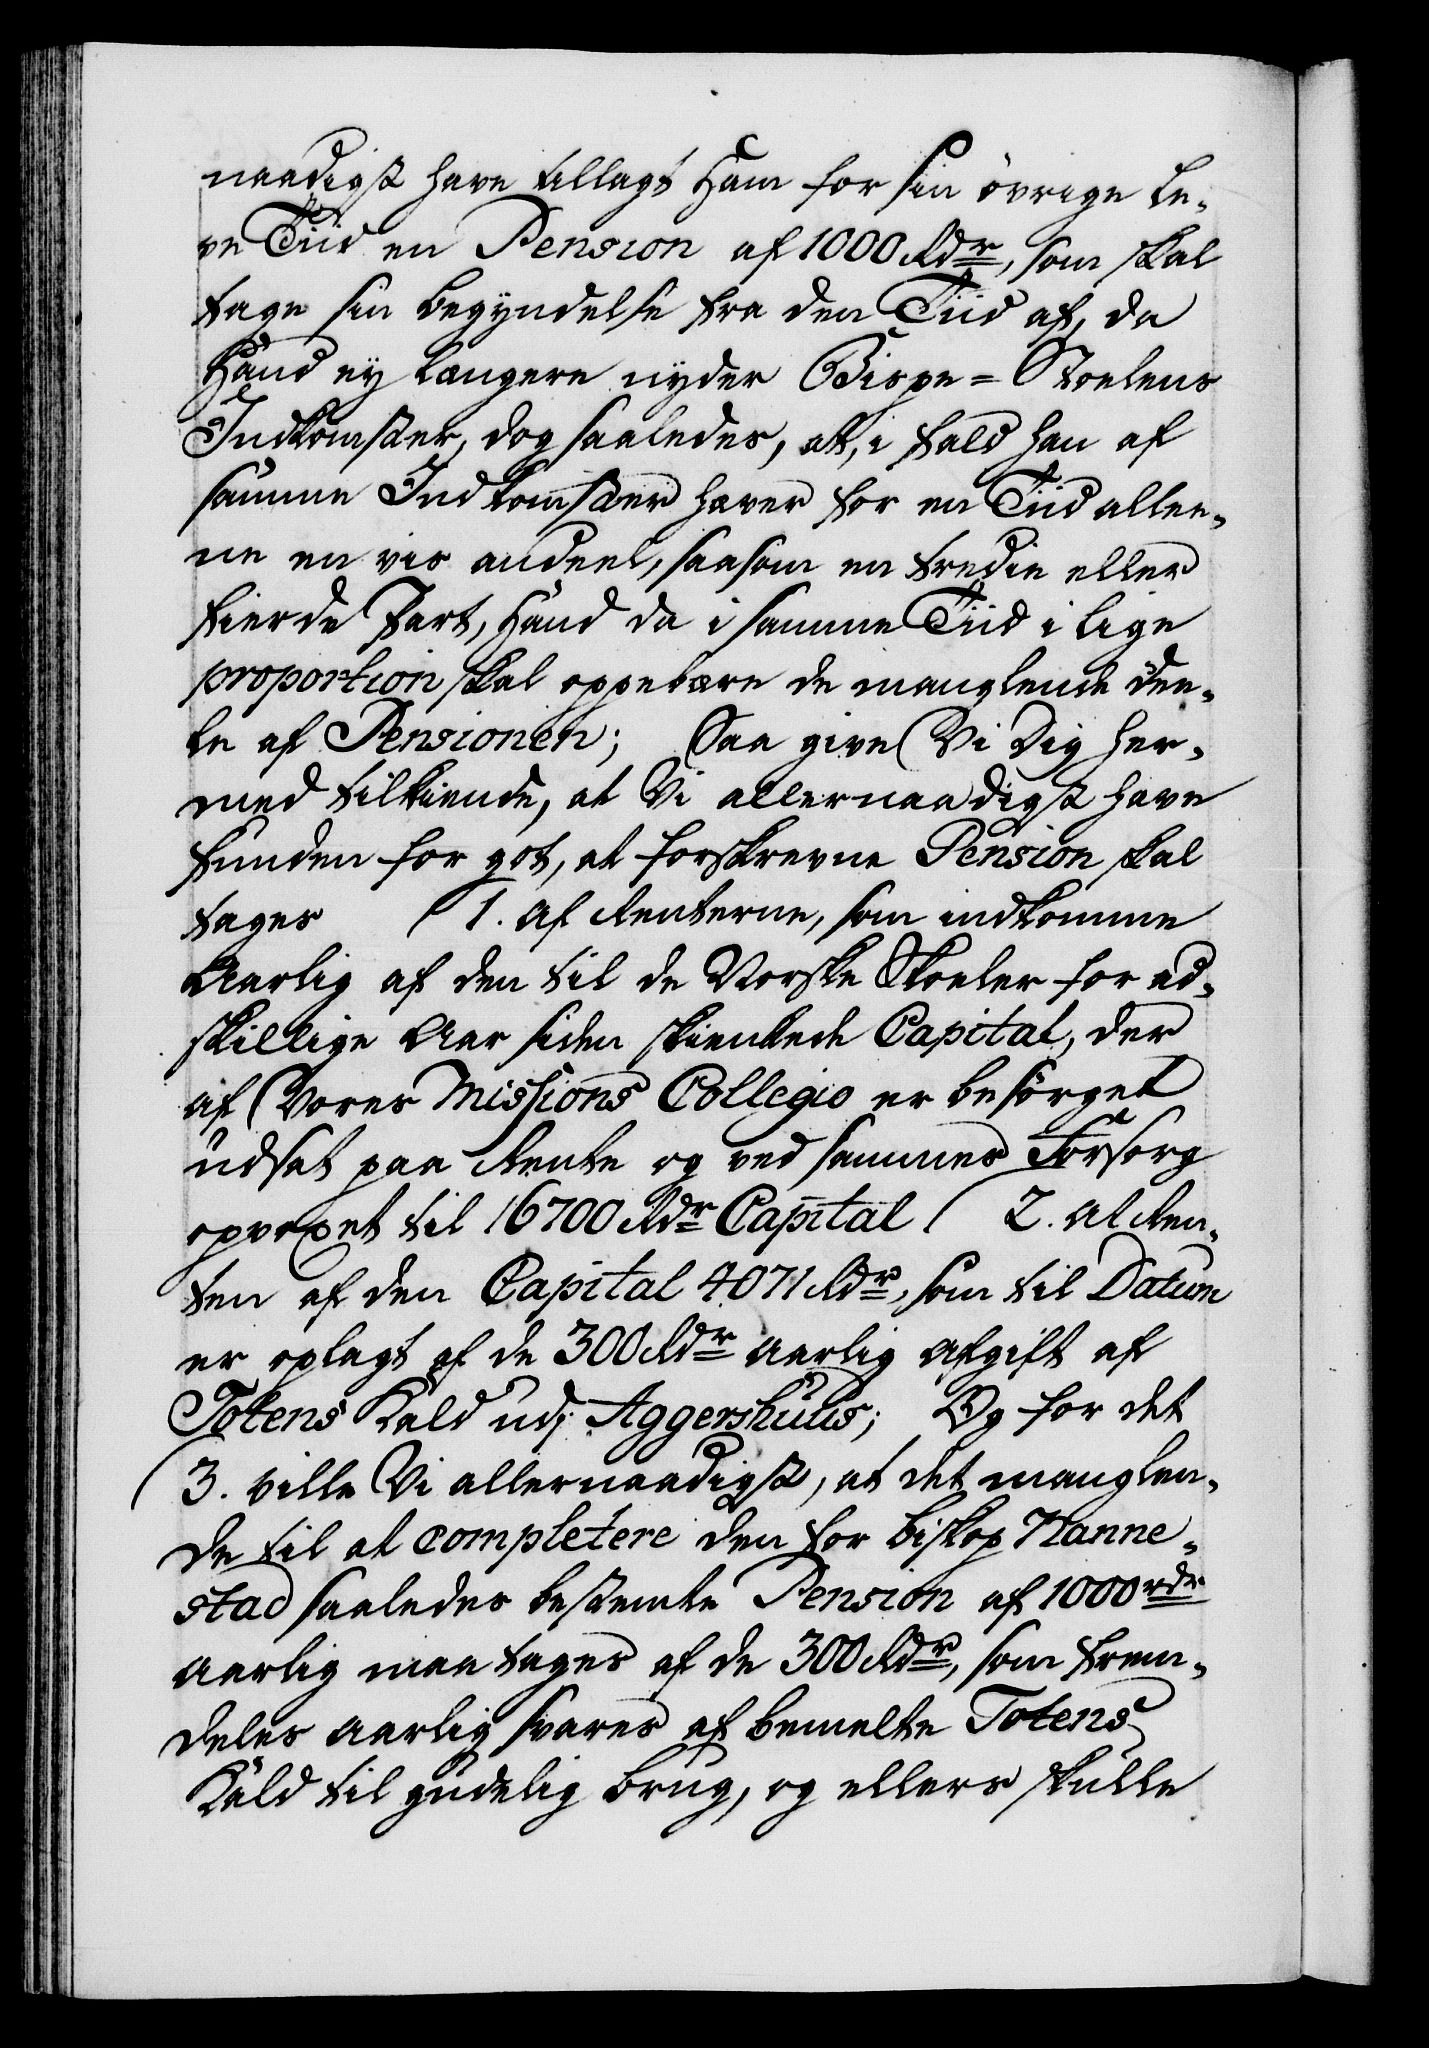 naadigst have tillagt Ham for sin övrige Le-
ve Tiid en Pension af 1000 Rdr, som skal
tage sin begyndelse fra den Tiid af, da
Hand ey længere nyder Bispe=Stoelens
Indkomster, dog saaledes, at, i fald han af
samme Indkomster hæver for en Tiid allee-
ne en vis andeel, saasom en tredie eller
fierde Part, Hand da i samme Tiid i lige
proportion skal oppebære de manglende dee-
le af Pensionen; Saa give Vi Dig her-
med tilkiende, at Vi allernaadigst have
funden for got, at forskrevne Pension skal
tages 1. Af Renterne, som indkomme
Aarlig af den til de Norske Skoeler for ad-
skillige Aar siden skienkede Capital, der
af Vores Missions Collegio er besörget
udsat paa Rente og ved sammes Forsorg
opvoxet til 16700 Rdr Capital 2. Al Ren-
ten af den Capital 4071 Rdr, som til Datum
er oplagt af de 300 Rdr Aarlig Afgift af
Totens Kald udj Aggershuus; Og for det
3. ville Vi allernaadigst, at det manglen-
de til at completere den for Biskop Nanne-
stad saaledes bestemte Pension af 1000 rdr
Aarlig maa tages af de 300 Rdr, som frem-
deles Aarlig svares af bemelte Totens
Kald til gudelig brug, og ellers skulle